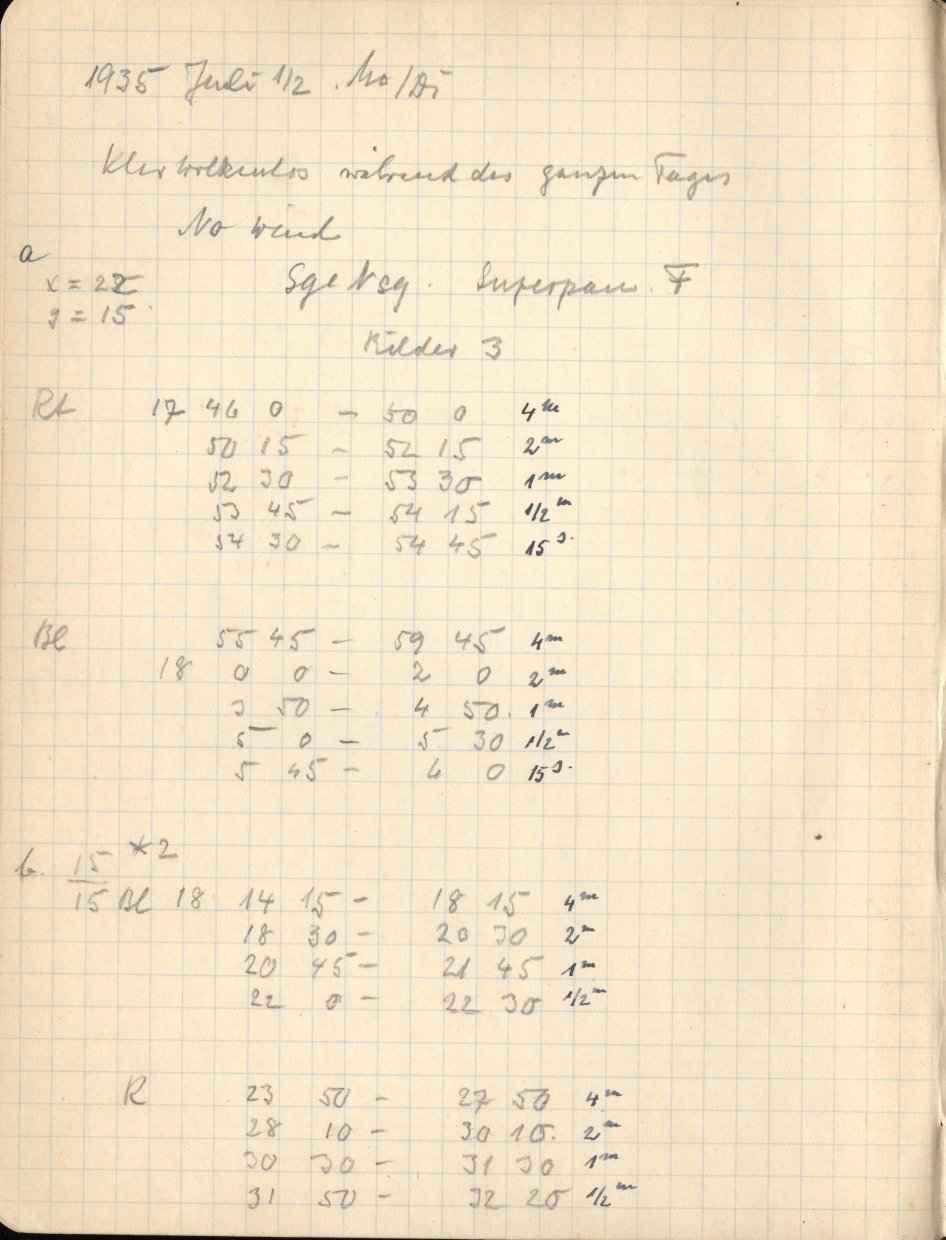 1935 Juli 1/2. Mo/Di
Klar wolkenlos während des ganzen Tages
No Wind
a
x = 22
y = 15
Sge Nsg. Superpan. F
Bilder 3
Rt 17 46 0 – 50 0 4m
50 15 – 52 15 2m
52 30 – 53 30 1m
53 45 – 54 15 1/2m
54 30 – 54 45 15s.
Bl 55 45 – 59 45 4m
18 0 0 – 2 0 2m
3 50 – 4 50. 1m
5 0 – 5 30 1/2m
5 45 – 6 0 15s.
b. 15/15 *2
Bl 18 14 15 – 18 15 4m
18 30 – 20 30 2m
20 45 – 21 45 1m
22 0 – 22 30 1/2m
R 23 50 – 27 50 4m
28 10 – 30 10. 2m
30 30 – 31 30 1m
31 50 – 32 20 1/2m